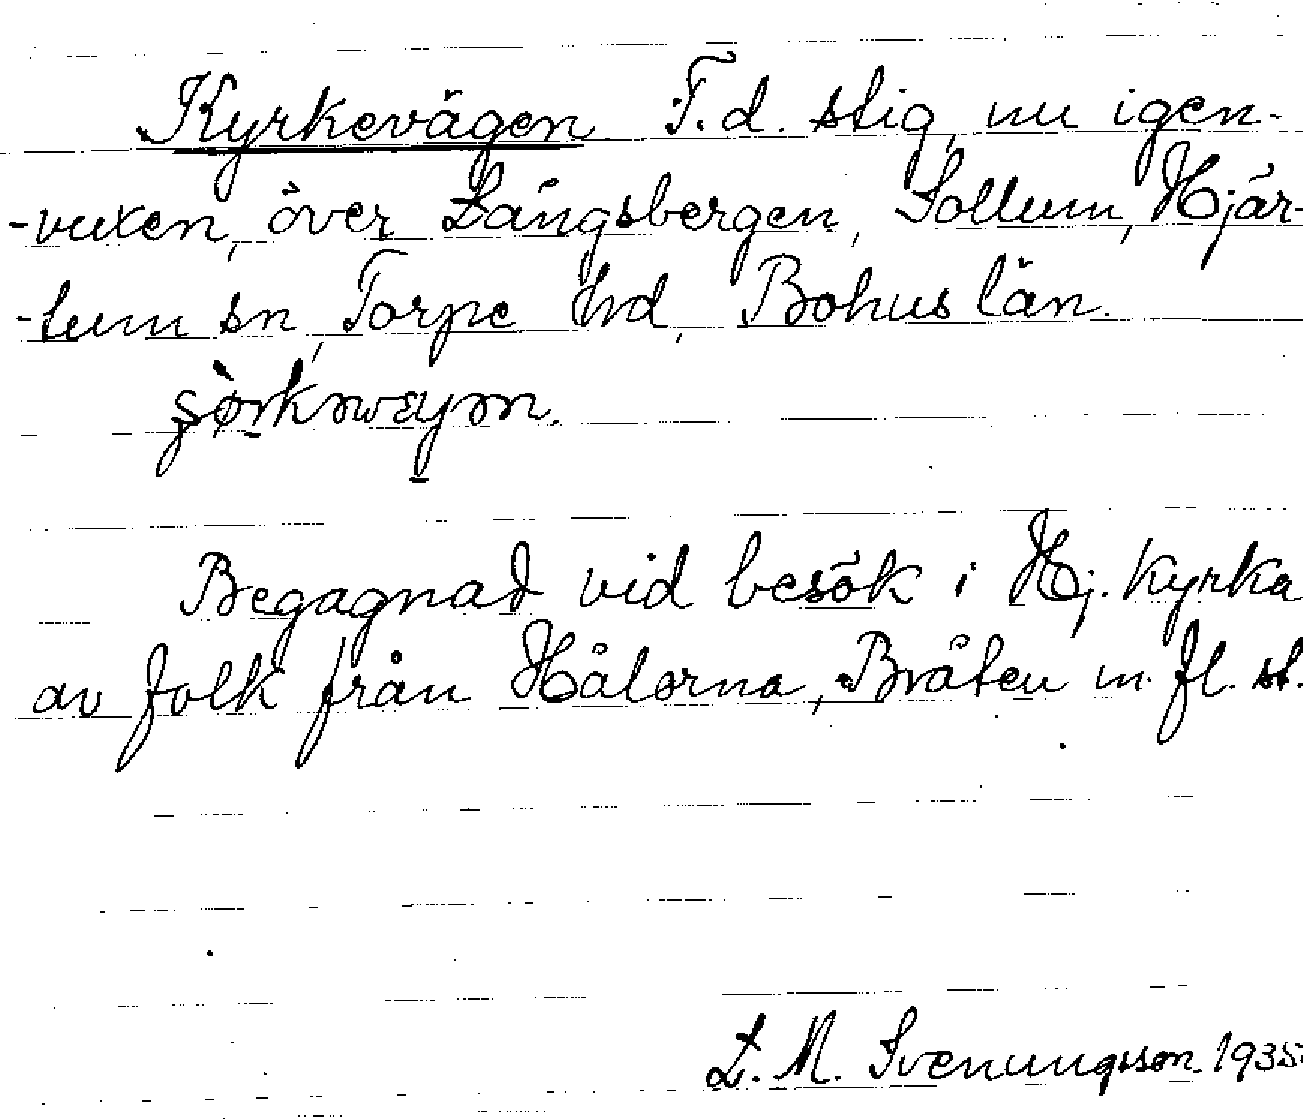 Kyrkevägen F.d. stig, nu igen-
-vuxen, över Långsbergen, Sollum, Hjär-
-tum sn, Torpe hd, Bohus län.
Begagnad vid besök i Hj. kyrka
av folk från Hålorna, Bråten m. fl. st.
L. M. Svenungsson 1935